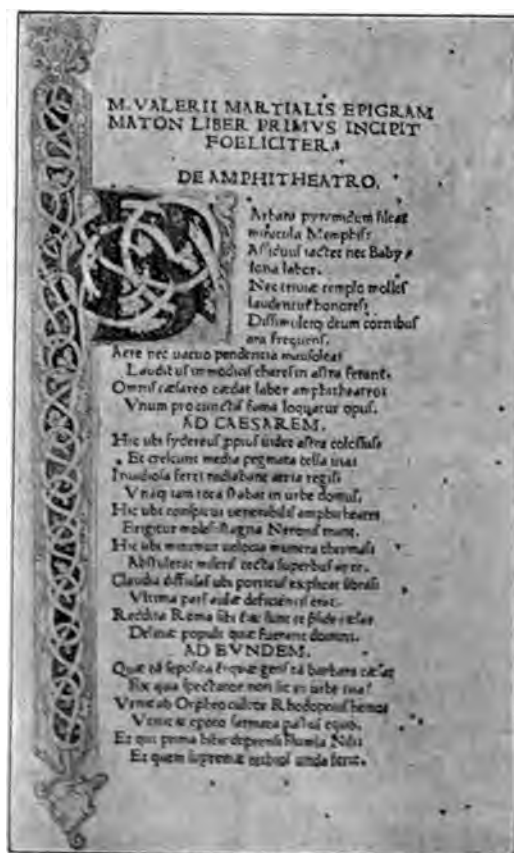 M. VALERII MARTIALIS EPIGRAM
MATON LIBER PRIMVS INCIPIT
FOELICITER.
DE AMPHITHEATRO.
BArbara pyramidum sileat
miracula Memphis:
Assiduus iactet nec Baby
lona labor.
Nec triuiae templo molles
laudentur honores:
Dissimuletq; deum cornibus
ara frequens.
Aere nec uacuo pendentia mausolea
Laudibus immodicis chares in astra ferant.
Omnis caesareo caedat labor amphitheatro:
Vnum pro cunctis fama loquatur opus.
AD CAESAREM.
Hic ubi sydereus ppius uidet astra colossus
Et crescunt media pegmata celsa uia:
Inuidiosa feri radiabant atria regis:
Vnaq; iam tota stabat in urbe domus.
Hic ubi conspicui uenerabilis amphitheatri
Erigitur moles: stagna Neronis erant.
Hic ubi miramur uelocia munera thermas:
Abstulerat miseris tecta superbus ager.
Claudia diffusas ubi porticus explicat umbras:
Vltima pars aulae deficientis erat.
Reddita Roma sibi est: sunt te pside caesar
Deliciae populi: quae fuerant domini.
AD EVNDEM.
Quae tā seposita est: quae gens tā barbara caesar
Ex qua spectator non sit in urbe tua?
Venit ab Orpheo cultor Rhodopeius hemo:
Venit et epoto sarmata pastus equo.
Et qui prima bibit deprensi flumina Nili:
Et quem supremae tethyos unda ferit.